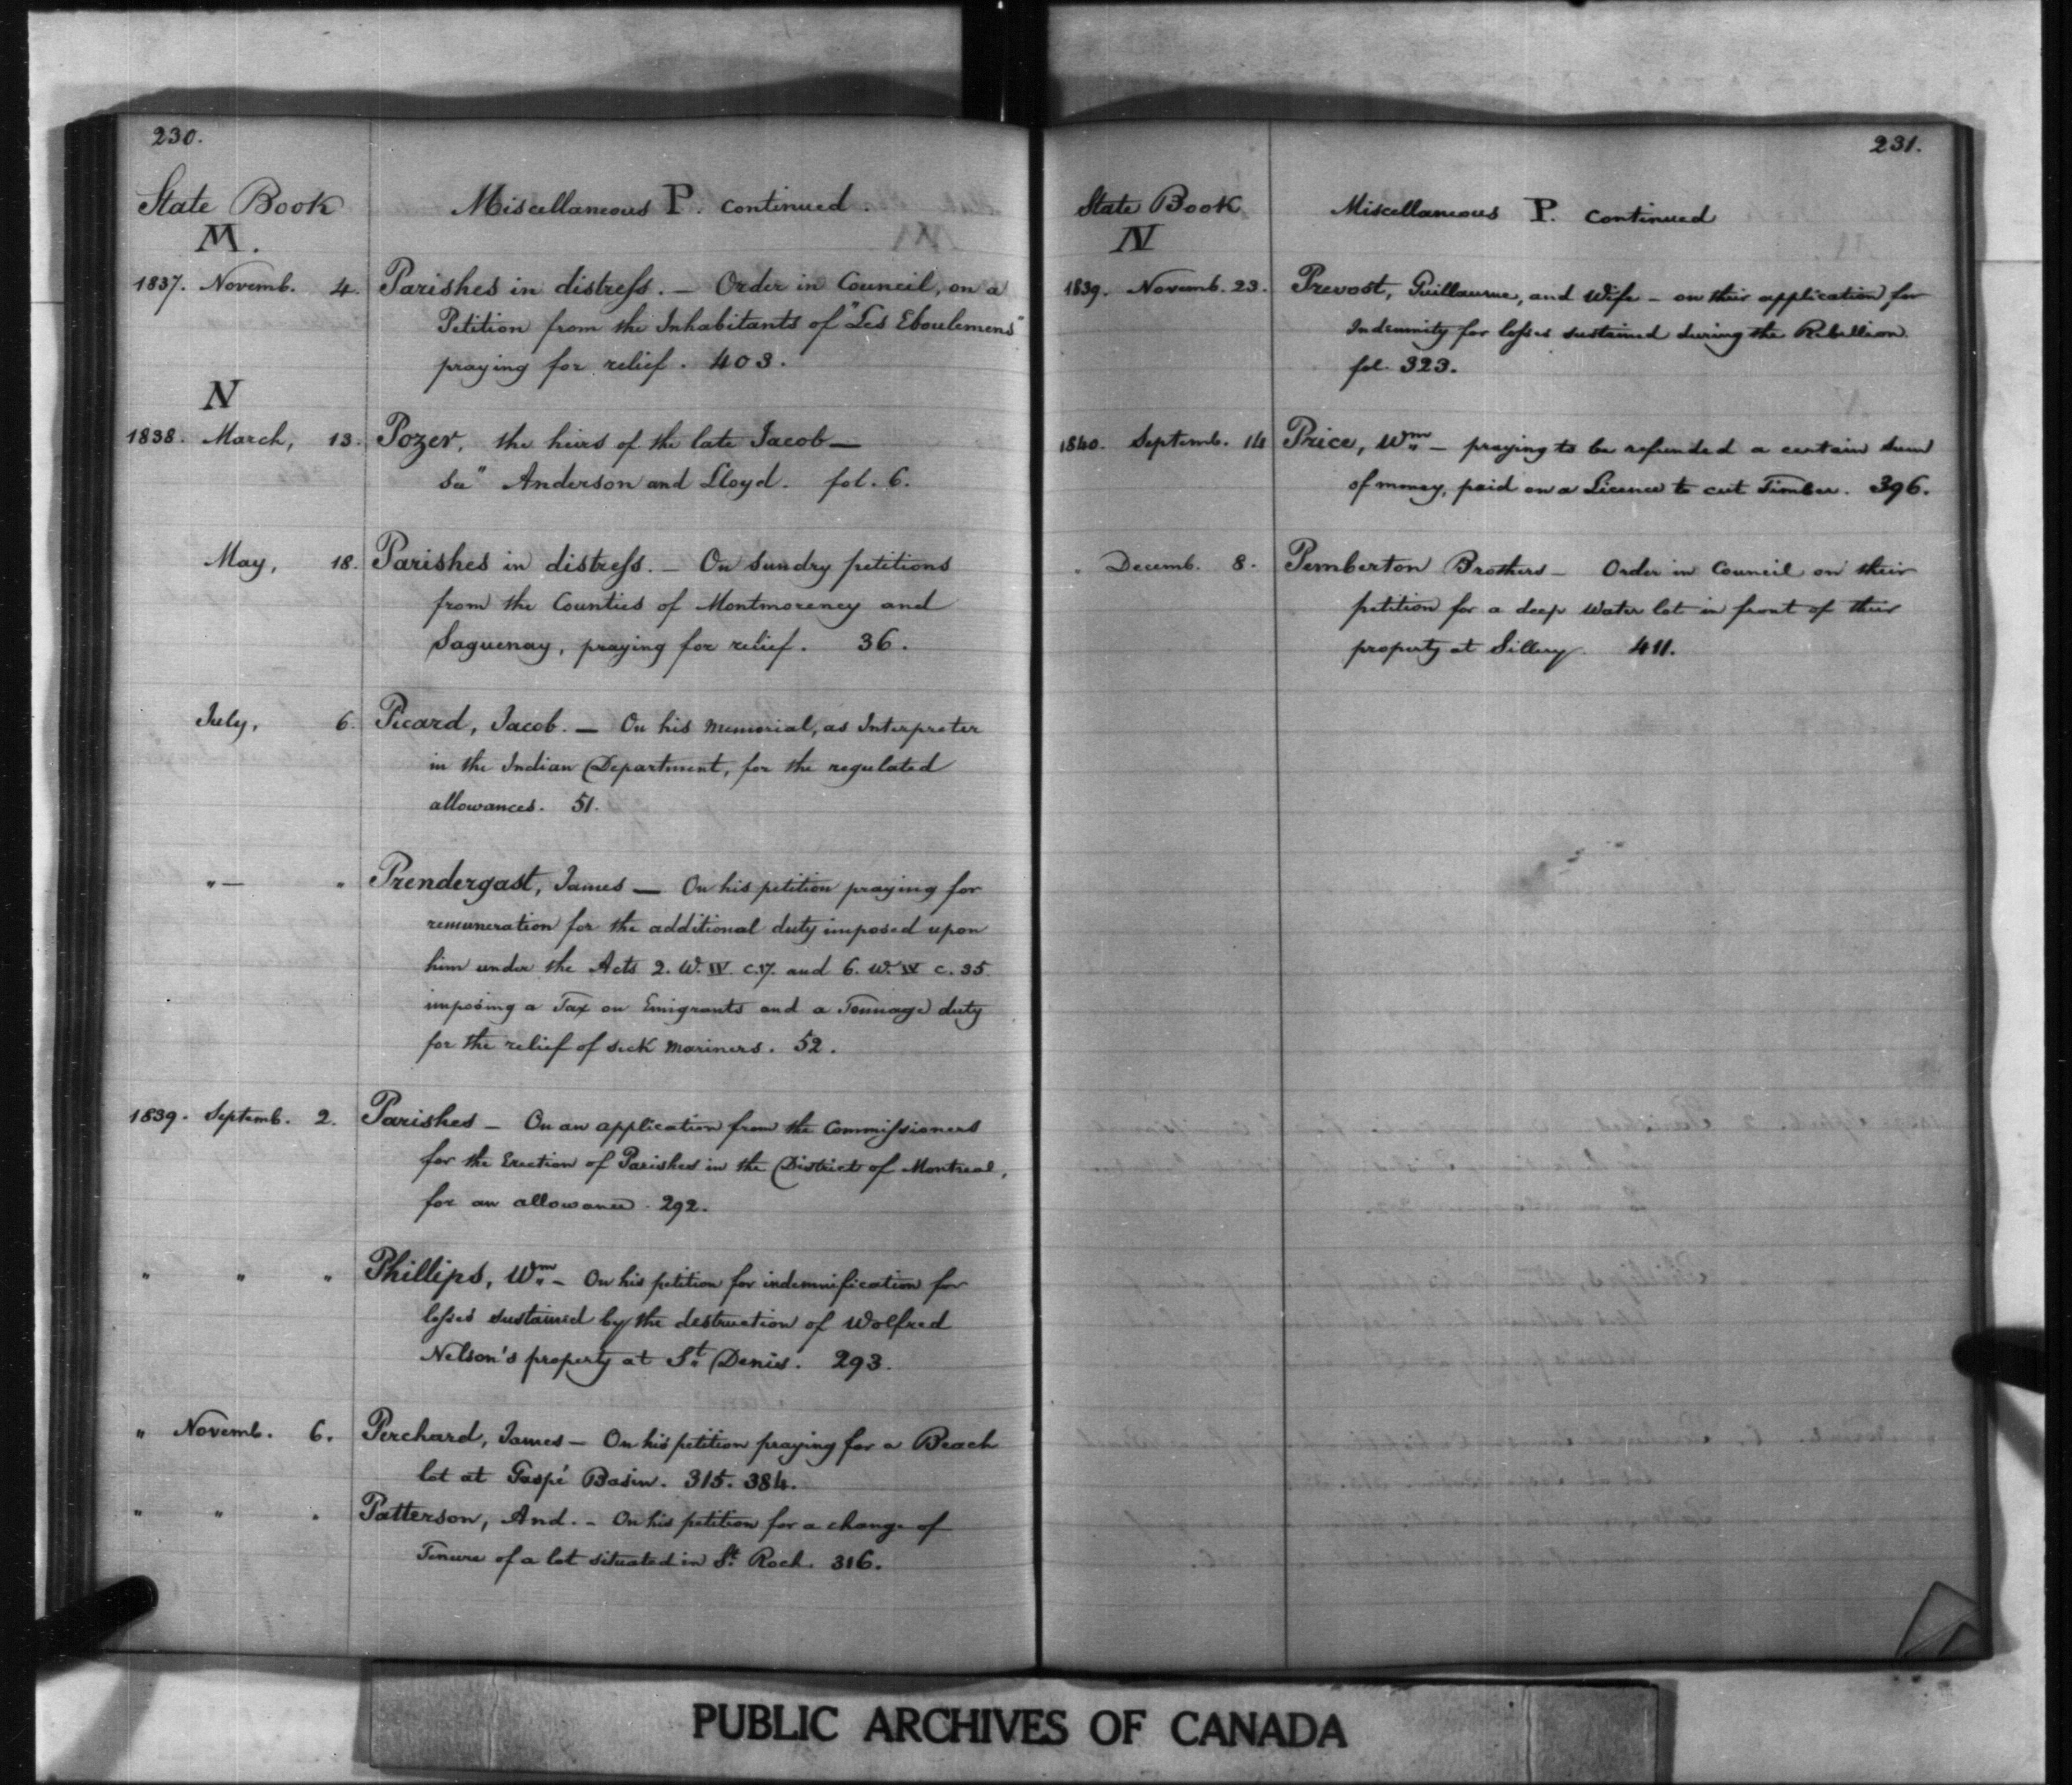 230.
State Book
Miscellaneous P. continued.
M.
1837. Novemb. 4. Parishes in distress. — Order in Council, on a
Petition from the Inhabitants of "Les Eboulemens"
praying for relief. 403.
N
1838. March, 13. Pozer, the heirs of the late Jacob —
See" Anderson and Lloyd. fol. 6.
May, 18. Parishes in distress. — On sundry petitions
from the Counties of Montmorency and
Saguenay, praying for relief. 36.
July, 6. Picard, Jacob. — On his memorial, as Interpreter
in the Indian Department, for the regulated
allowances. 51.
" — " Prendergast, James — On his petition praying for
remuneration for the additional duty imposed upon
him under the Acts 2. W. IV. c.17. and 6. W. IV c. 35
imposing a Tax on Emigrants and a Tonnage duty
for the relief of sick mariners. 52.
1839. Septemb. 2. Parishes — On an application from the Commissioners
for the Erection of Parishes in the District of Montreal,
for an allowance. 292.
" " " Phillips, Wm. — On his petition for indemnification for
losses sustained by the destruction of Wolfred
Nelson's property at St. Denis. 293.
" Novemb. 6. Perchard, James — On his petition praying for a Beach
lot at Gaspé Basin. 315. 384.
" " " Patterson, And. — On his petition for a change of
Tenure of a lot situated in St. Roch. 316.
231.
State Book
Miscellaneous P. continued
N
1839. Novemb. 23. Prevost, Guillaume, and Wife — on their application for
Indemnity for losses sustained during the Rebellion.
fol. 323.
1840. Septemb. 14 Price, Wm. — praying to be refunded a certain sum
of money, paid on a Licence to cut Timber. 396.
" Decemb. 8. Pemberton Brothers — Order in Council on their
petition for a deep water lot in front of their
property at Sillery. 411.
PUBLIC ARCHIVES OF CANADA